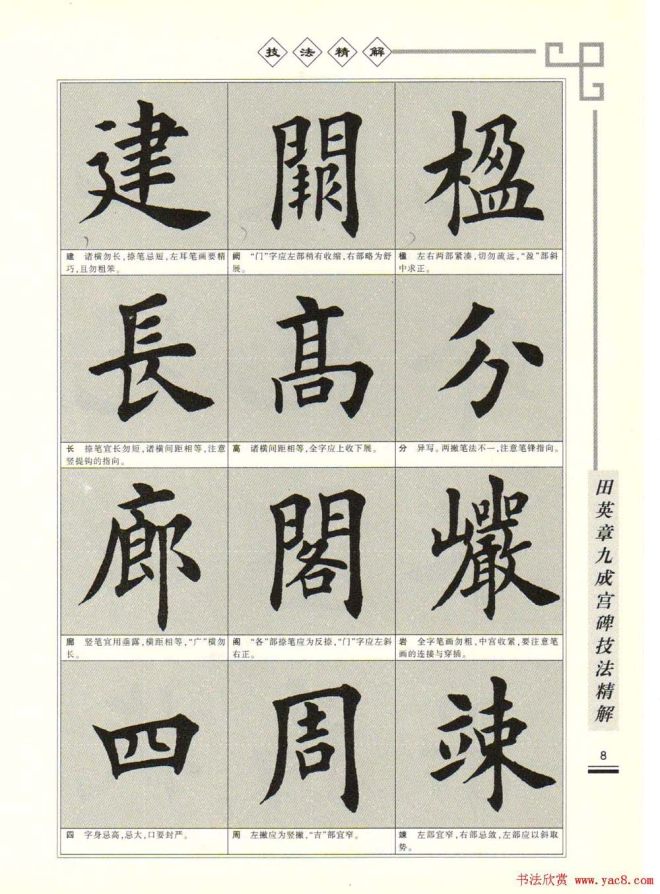 技法精解
楹
楹 左右两部紧凑,切勿疏远,“盈”部斜
中求正。
分
分 异写。两撇笔法不一,注意笔锋指向。
巖
岩 全字笔画勿粗,中宫收紧,要注意笔
画的连接与穿插。
竦
竦 左部宜窄,右部忌敛,左部应以斜取
势。
闕
阙 “门”字应左部稍有收缩,右部略为舒
展。
高
高 诸横间距相等,全字应上收下展。
閣
阁 “各”部捺笔应为反捺,“门”字应左斜
右正。
周
周 左撇应为竖撇,“吉”部宜窄。
建
建 诸横勿长,捺笔忌短,左耳笔画要精
巧,且勿粗笨。
長
长 捺笔宜长勿短,诸横间距相等,注意
竖提钩的指向。
廊
廊 竖笔宜用垂露,横距相等,“广”横勿
长。
四
四 字身忌高,忌大,口要封严。
田英章九成宫碑技法精解
8
书法欣赏 www.yac8.com